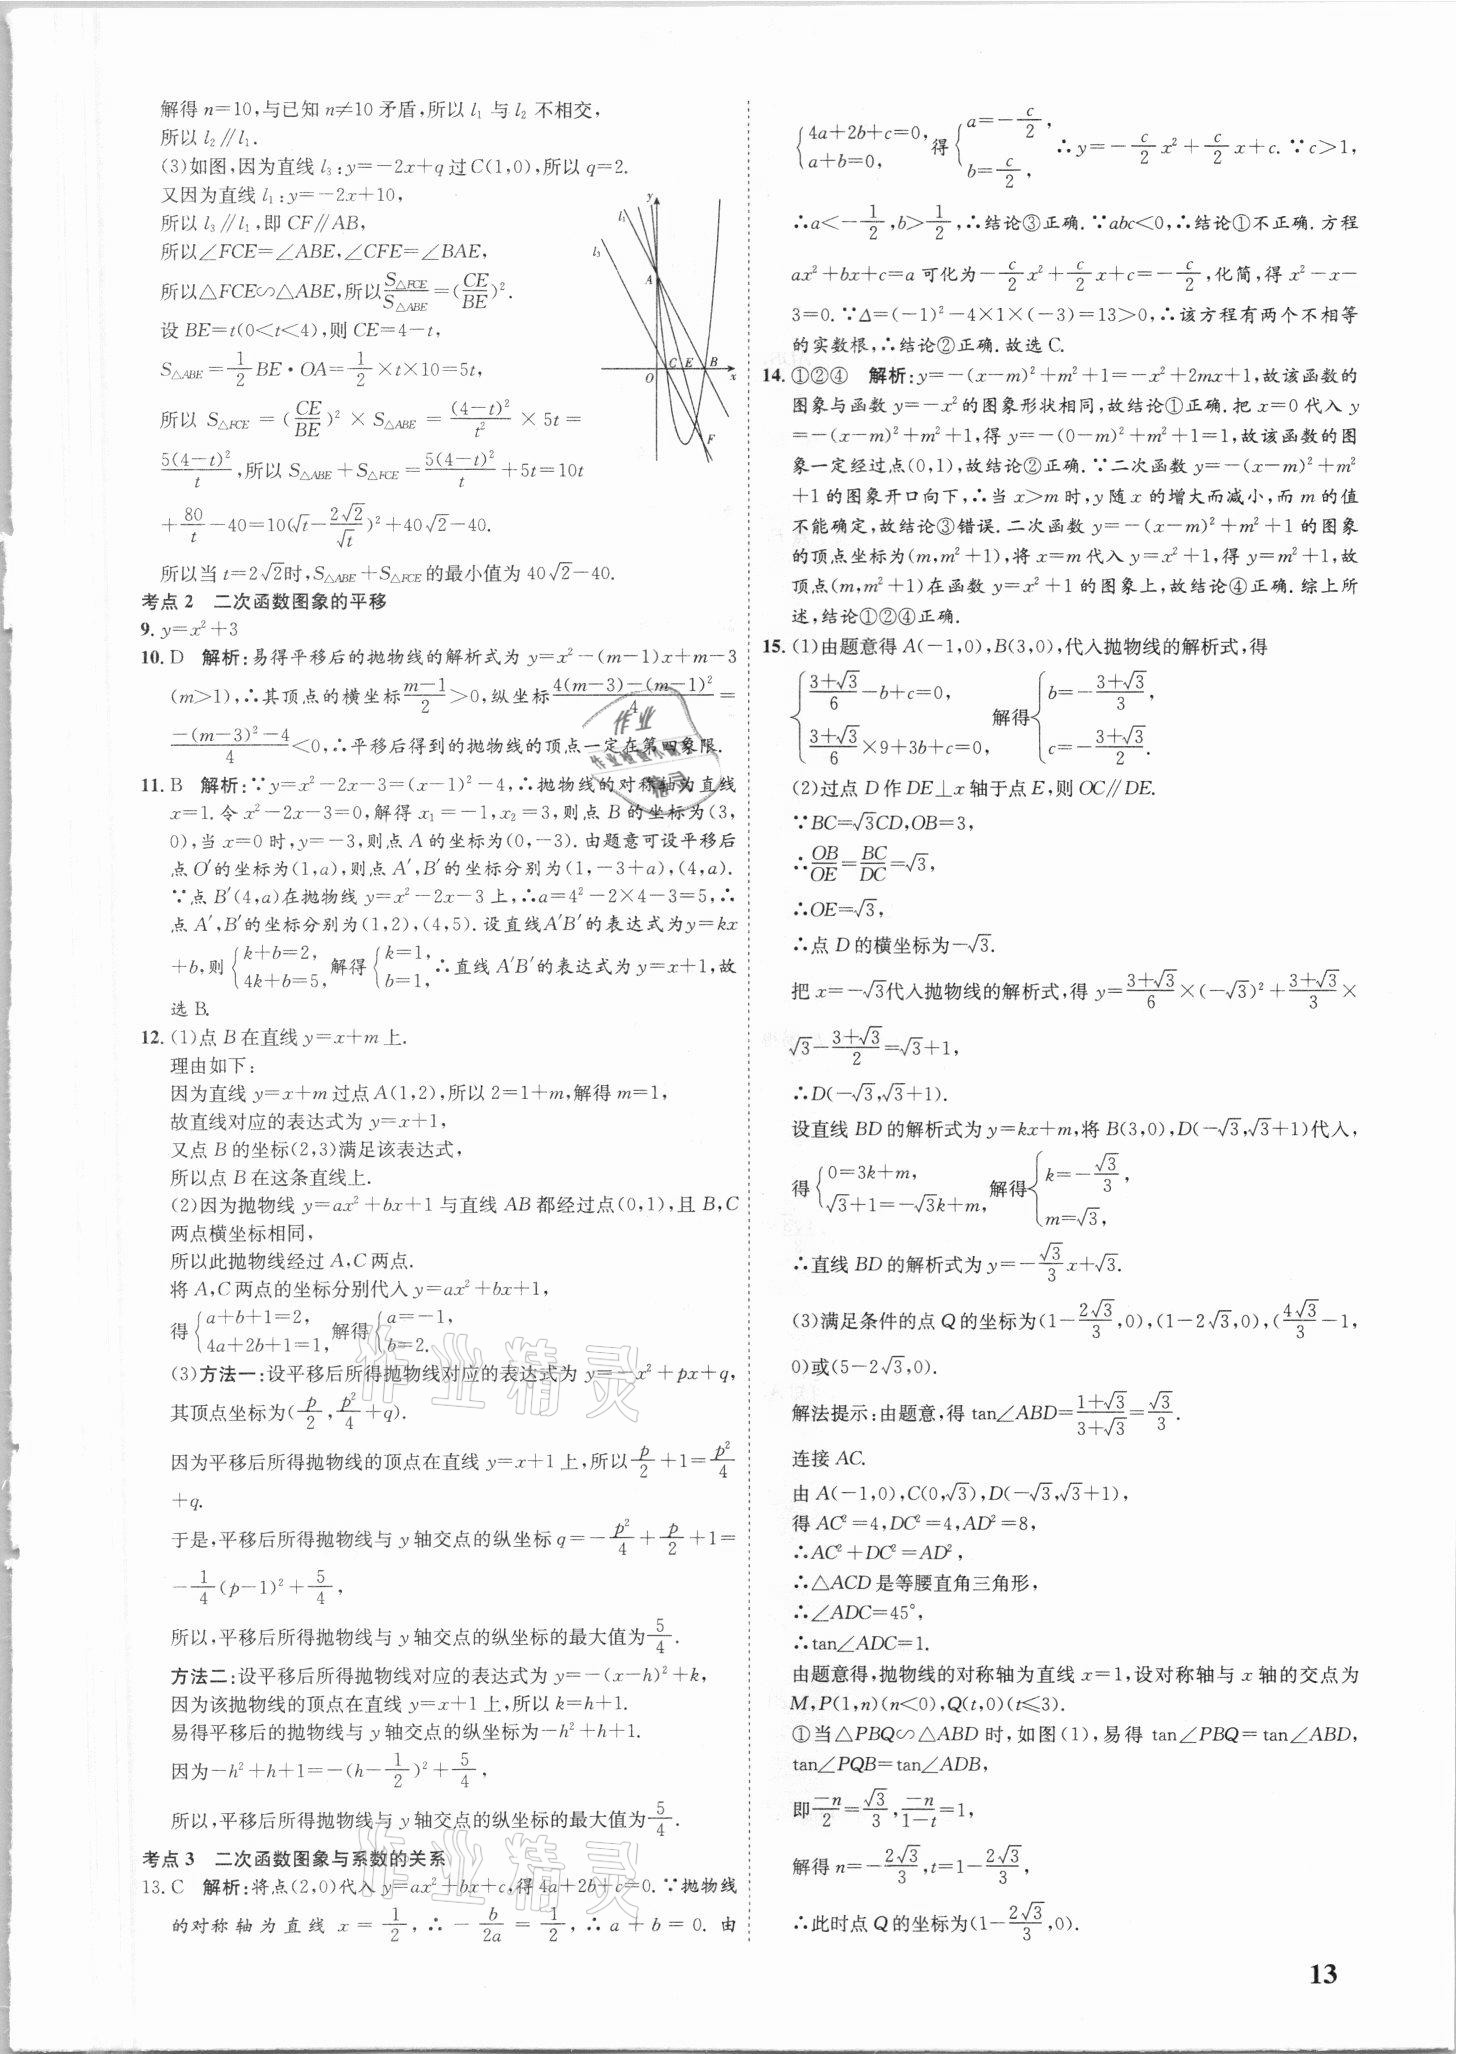 解得 n=10,与已知 n≠10 矛盾,所以 l₁ 与 l₂ 不相交,
所以 l₂∥l₁.
(3)如图,因为直线 l₃:y=-2x+q 过 C(1,0),所以 q=2.
又因为直线 l₁:y=-2x+10,
所以 l₃∥l₁,即 CF∥AB,
所以∠FCE=∠ABE,∠CFE=∠BAE,
所以△FCE∽△ABE,所以S△FCE/S△ABE=(CE/BE)².
设 BE=t(0<t<4),则 CE=4-t,
S△ABE=1/2 BE·OA=1/2×t×10=5t,
所以 S△FCE=(CE/BE)²×S△ABE=(4-t)²/t²×5t=
5(4-t)²/t,所以 S△ABE+S△FCE=5(4-t)²/t+5t=10t
+80/t-40=10(√t-2√2/√t)²+40√2-40.
所以当 t=2√2时,S△ABE+S△FCE的最小值为 40√2-40.
y
l₁
l₃
A
C E B
O x
F
考点 2 二次函数图象的平移
9. y=x²+3
10. D 解析:易得平移后的抛物线的解析式为 y=x²-(m-1)x+m-3
(m>1),∴其顶点的横坐标(m-1)/2>0,纵坐标[4(m-3)-(m-1)²]/4=
[-(m-3)²-4]/4<0,∴平移后得到的抛物线的顶点一定在第四象限.
11. B 解析:∵y=x²-2x-3=(x-1)²-4,∴抛物线的对称轴为直线
x=1. 令 x²-2x-3=0,解得 x₁=-1,x₂=3,则点 B 的坐标为(3,
0),当 x=0 时,y=-3,则点 A 的坐标为(0,-3). 由题意可设平移后
点 O′的坐标为(1,a),则点 A′,B′的坐标分别为(1,-3+a),(4,a).
∵点 B′(4,a)在抛物线 y=x²-2x-3 上,∴a=4²-2×4-3=5,∴
点 A′,B′的坐标分别为(1,2),(4,5). 设直线A′B′的表达式为y=kx
+b,则{k+b=2, 4k+b=5, 解得{k=1, b=1, ∴直线 A′B′的表达式为 y=x+1,故
选 B.
12. (1)点 B 在直线 y=x+m 上.
理由如下:
因为直线 y=x+m 过点 A(1,2),所以 2=1+m,解得 m=1,
故直线对应的表达式为 y=x+1,
又点 B 的坐标(2,3)满足该表达式,
所以点 B 在这条直线上.
(2)因为抛物线 y=ax²+bx+1 与直线 AB 都经过点(0,1),且 B,C
两点横坐标相同,
所以此抛物线经过 A,C 两点.
将 A,C 两点的坐标分别代入 y=ax²+bx+1,
得{a+b+1=2, 4a+2b+1=1, 解得{a=-1, b=2.
(3)方法一:设平移后所得抛物线对应的表达式为 y=-x²+px+q,
其顶点坐标为(p/2,p²/4+q).
因为平移后所得抛物线的顶点在直线 y=x+1 上,所以p/2+1=p²/4
+q.
于是,平移后所得抛物线与 y 轴交点的纵坐标 q=-p²/4+p/2+1=
-1/4(p-1)²+5/4,
所以,平移后所得抛物线与 y 轴交点的纵坐标的最大值为5/4.
方法二:设平移后所得抛物线对应的表达式为 y=-(x-h)²+k,
因为该抛物线的顶点在直线 y=x+1 上,所以 k=h+1.
易得平移后的抛物线与 y 轴交点的纵坐标为-h²+h+1.
因为-h²+h+1=-(h-1/2)²+5/4,
所以,平移后所得抛物线与 y 轴交点的纵坐标的最大值为5/4.
考点 3 二次函数图象与系数的关系
13. C 解析:将点(2,0)代入 y=ax²+bx+c,得 4a+2b+c=0. ∵抛物线
的对称轴为直线 x=1/2,∴-b/2a=1/2,∴a+b=0. 由
{4a+2b+c=0, a+b=0, 得{a=-c/2, b=c/2, ∴y=-c/2x²+c/2x+c. ∵c>1,
∴a<-1/2,b>1/2,∴结论③正确. ∵abc<0,∴结论①不正确. 方程
ax²+bx+c=a 可化为-c/2x²+c/2x+c=-c/2,化简,得 x²-x-
3=0. ∵Δ=(-1)²-4×1×(-3)=13>0,∴该方程有两个不相等
的实数根,∴结论②正确. 故选 C.
14. ①②④ 解析:y=-(x-m)²+m²+1=-x²+2mx+1,故该函数的
图象与函数 y=-x²的图象形状相同,故结论①正确. 把 x=0 代入 y
=-(x-m)²+m²+1,得 y=-(0-m)²+m²+1=1,故该函数的图
象一定经过点(0,1),故结论②正确. ∵二次函数 y=-(x-m)²+m²
+1 的图象开口向下,∴当 x>m 时,y 随 x 的增大而减小,而 m 的值
不能确定,故结论③错误. 二次函数 y=-(x-m)²+m²+1 的图象
的顶点坐标为(m,m²+1),将 x=m 代入 y=x²+1,得 y=m²+1,故
顶点(m,m²+1)在函数 y=x²+1 的图象上,故结论④正确. 综上所
述,结论①②④正确.
15. (1)由题意得 A(-1,0),B(3,0),代入抛物线的解析式,得
{(3+√3)/6-b+c=0, (3+√3)/6×9+3b+c=0, 解得{b=-(3+√3)/3, c=-(3+√3)/2.
(2)过点 D 作 DE⊥x 轴于点 E,则 OC∥DE.
∵BC=√3CD,OB=3,
∴OB/OE=BC/DC=√3,
∴OE=√3,
∴点 D 的横坐标为-√3.
把 x=-√3代入抛物线的解析式,得 y=(3+√3)/6×(-√3)²+(3+√3)/3×
√3-(3+√3)/2=√3+1,
∴D(-√3,√3+1).
设直线 BD 的解析式为 y=kx+m,将 B(3,0),D(-√3,√3+1)代入,
得{0=3k+m, √3+1=-√3k+m, 解得{k=-√3/3, m=√3,
∴直线 BD 的解析式为 y=-√3/3x+√3.
(3)满足条件的点 Q 的坐标为(1-2√3/3,0),(1-2√3,0),(4√3/3-1,
0)或(5-2√3,0).
解法提示:由题意,得 tan∠ABD=(1+√3)/(3+√3)=√3/3.
连接 AC.
由 A(-1,0),C(0,√3),D(-√3,√3+1),
得 AC²=4,DC²=4,AD²=8,
∴AC²+DC²=AD²,
∴△ACD 是等腰直角三角形,
∴∠ADC=45°,
∴tan∠ADC=1.
由题意得,抛物线的对称轴为直线 x=1,设对称轴与 x 轴的交点为
M,P(1,n)(n<0),Q(t,0)(t≤3).
①当△PBQ∽△ABD 时,如图(1),易得 tan∠PBQ=tan∠ABD,
tan∠PQB=tan∠ADB,
即-n/2=√3/3,-n/(1-t)=1,
解得 n=-2√3/3,t=1-2√3/3,
∴此时点 Q 的坐标为(1-2√3/3,0).
13
作业精灵
作业精灵
作业
精灵